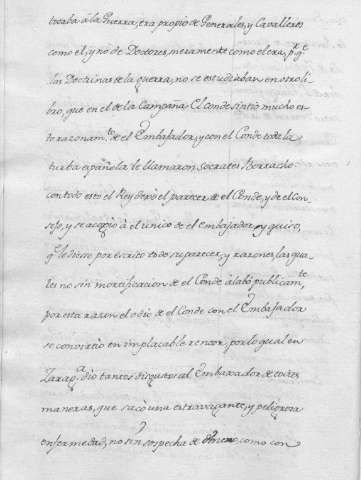 tocaba à la Guerra, era propio de Generales, y Cavalleros
como el, y no de Doctores, meramente como el era, p.r q.e
las Doctrinas de la guerra, no se estudiaban en otro li-
bro, que en el de la Campaña. El conde sintio mucho es-
to razonam.to de el Embajador, y con el Conde toda la
turba española le llamaron, Socrates, Borracho
con todo esto el Rey dejò el parecer de el Conde, y de el Con-
sejo, y se acogio à el unico de el embajador, y quiso,
q.e le diesse por escrito todo su parecer, y razones, las qua-
les no sin mortificacion de el Conde alabò publicam.te
por esta razon el odio de el Conde con el Embajador
se convirtio en implacable rencor, por lo qual en
Zarag.a dio tantos disgustos al Embaxador de todas
maneras, que sacò una extravagante, y peligrosa
enfermedad, no sin sospecha de como con